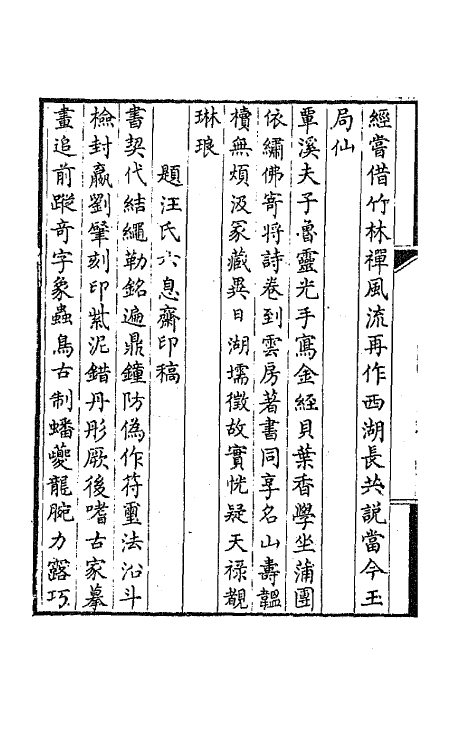 經嘗借竹林禪風流再作西湖長共説當今玉
局仙
覃溪夫子魯靈光手寫金經貝葉香學坐蒲團
依繡佛寄將詩卷到雲房著書同享名山壽韞
櫝無煩汲冢藏異日湖壖徵故實恍疑天祿覩
琳琅
題汪氏六息齋印稿
書契代結繩勒銘遍鼎鐘防偽作符璽法沿斗
檢封嬴劉肇刻印紫泥錯丹彤厥後嗜古家摹
畫追前蹤奇字象蟲鳥古制蟠夔龍腕力露巧